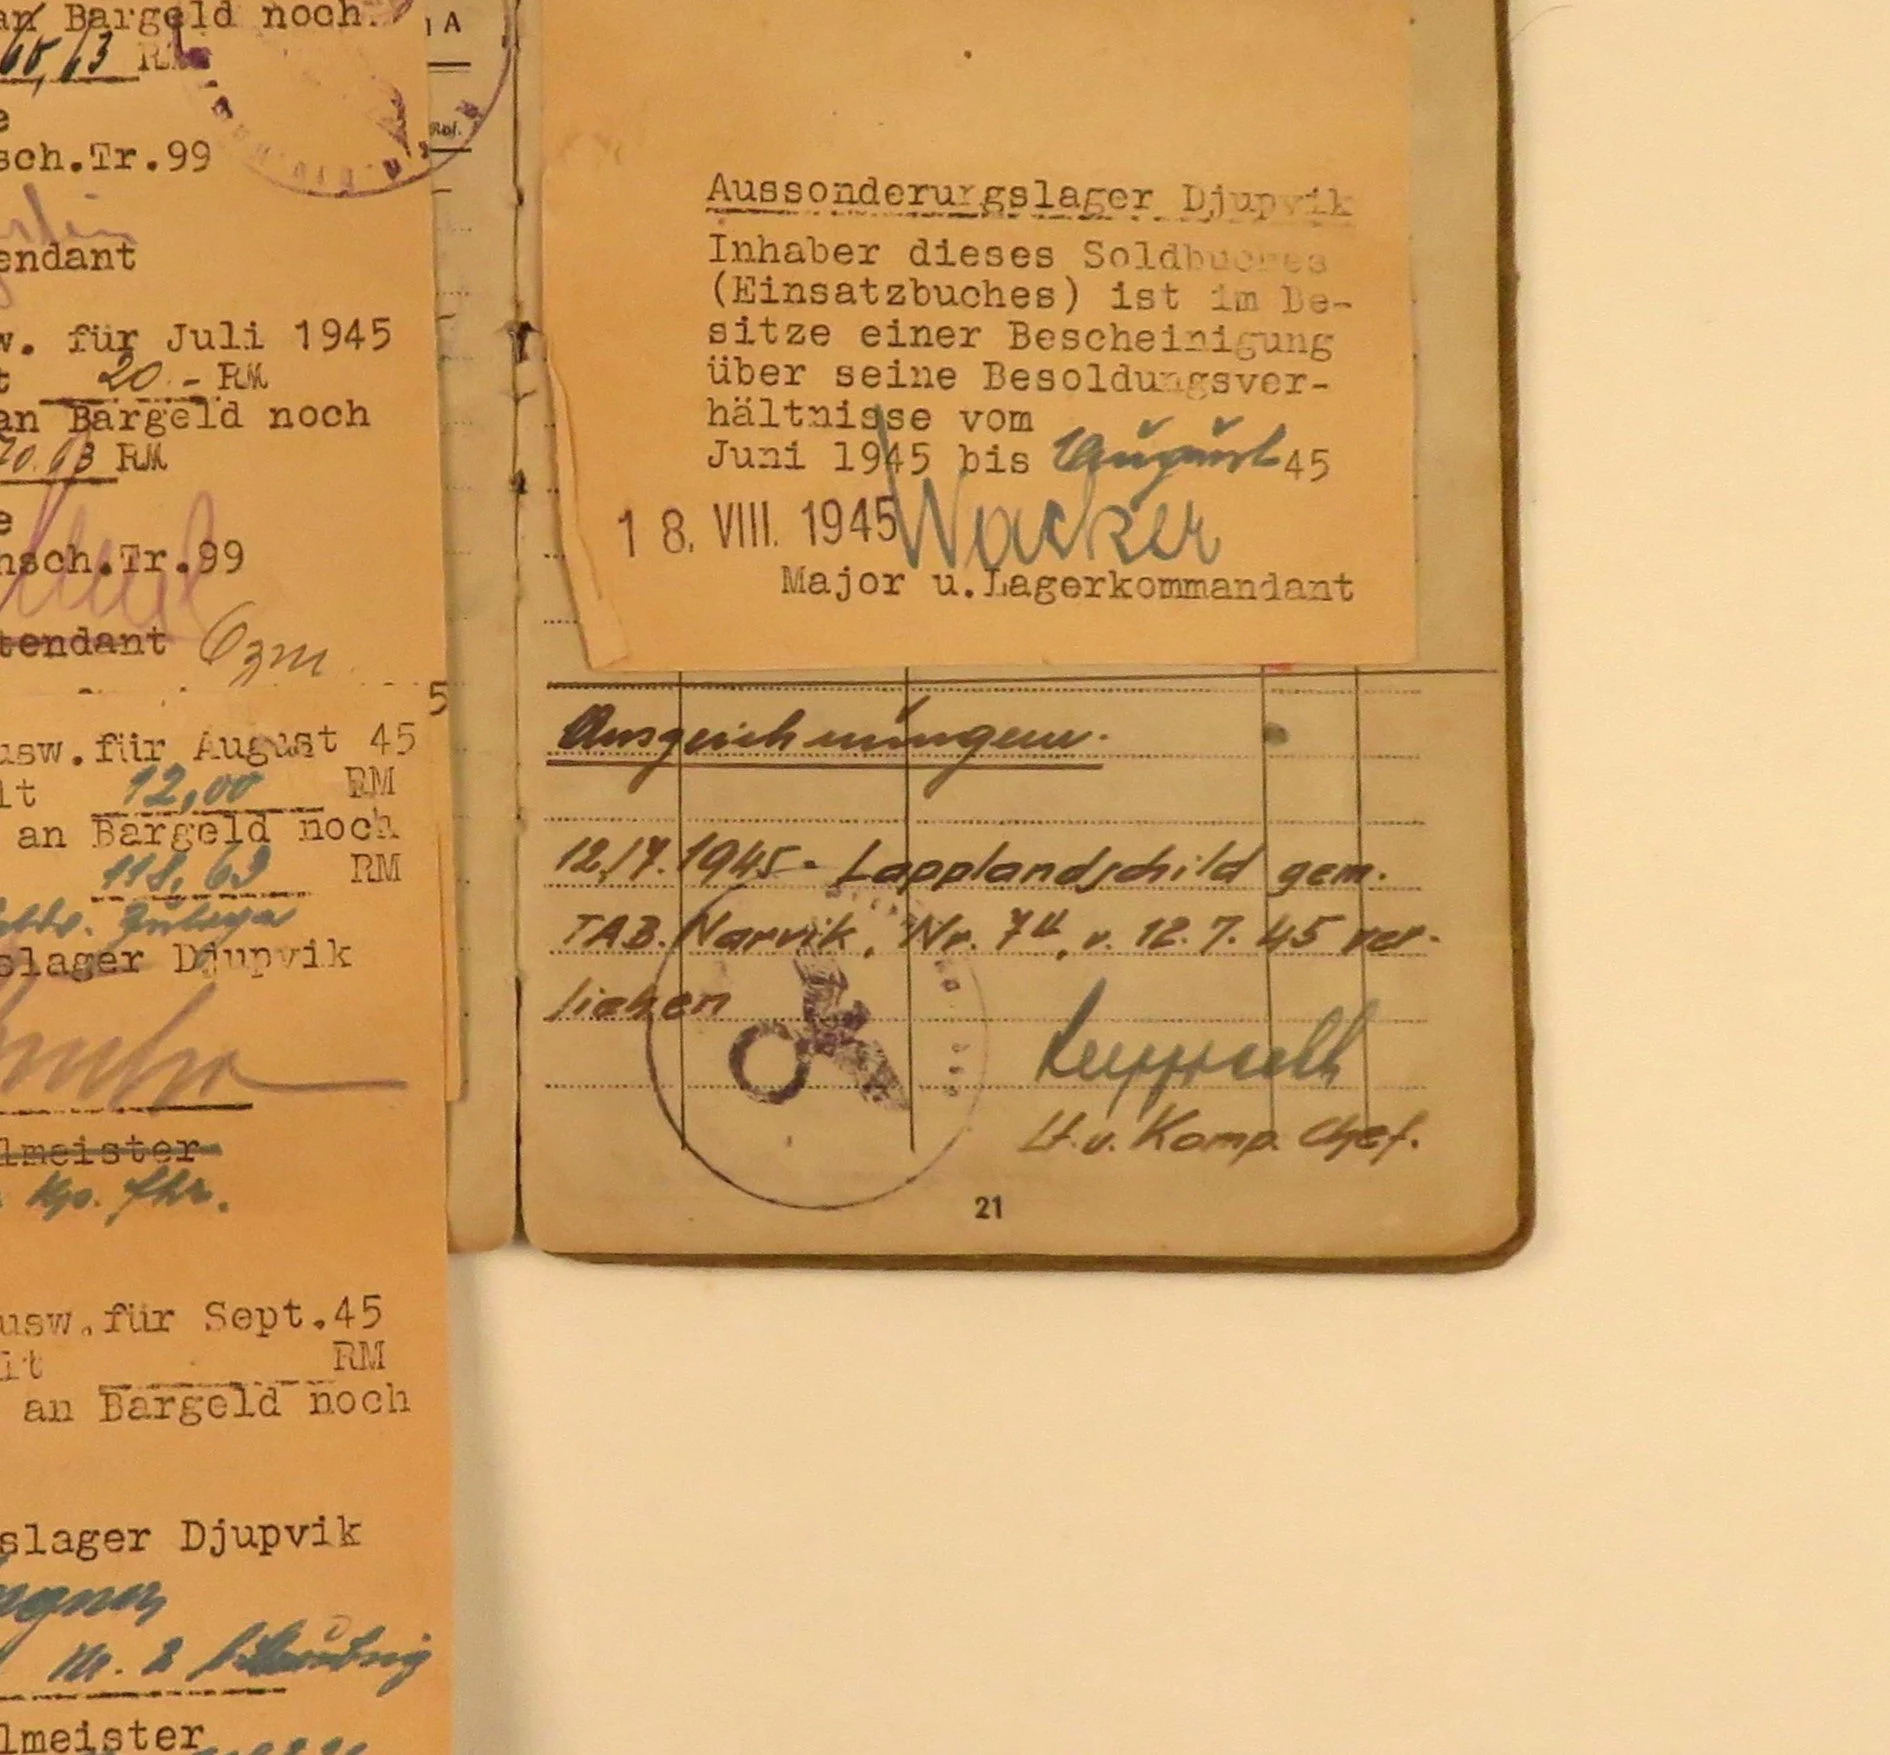 an Bargeld noch
RM
sch.Tr.99
endant
w. für Juli 1945
t 20.- RM
an Bargeld noch
70.63 RM
nsch.Tr.99
tendant
5
usw.für August 45
lt 12,00 RM
an Bargeld noch
118,63 RM
slager Djupvik
lmeister
Kp. Fhr.
usw.für Sept.45
lt RM
an Bargeld noch
slager Djupvik
lmeister
A
Rpf.
Aussonderungslager Djupvik
Inhaber dieses Soldbuches
(Einsatzbuches) ist im Be-
sitze einer Bescheinigung
über seine Besoldungsver-
hältnisse vom
Juni 1945 bis August 45
18. VIII. 1945 Wacker
Major u.Lagerkommandant
Auszeichnungen.
12.7.1945- Lapplandschild gem.
TAB. Narvik, Nr. 74, v. 12.7.45 ver-
liehen
Lt. u. Komp. Chef.
21